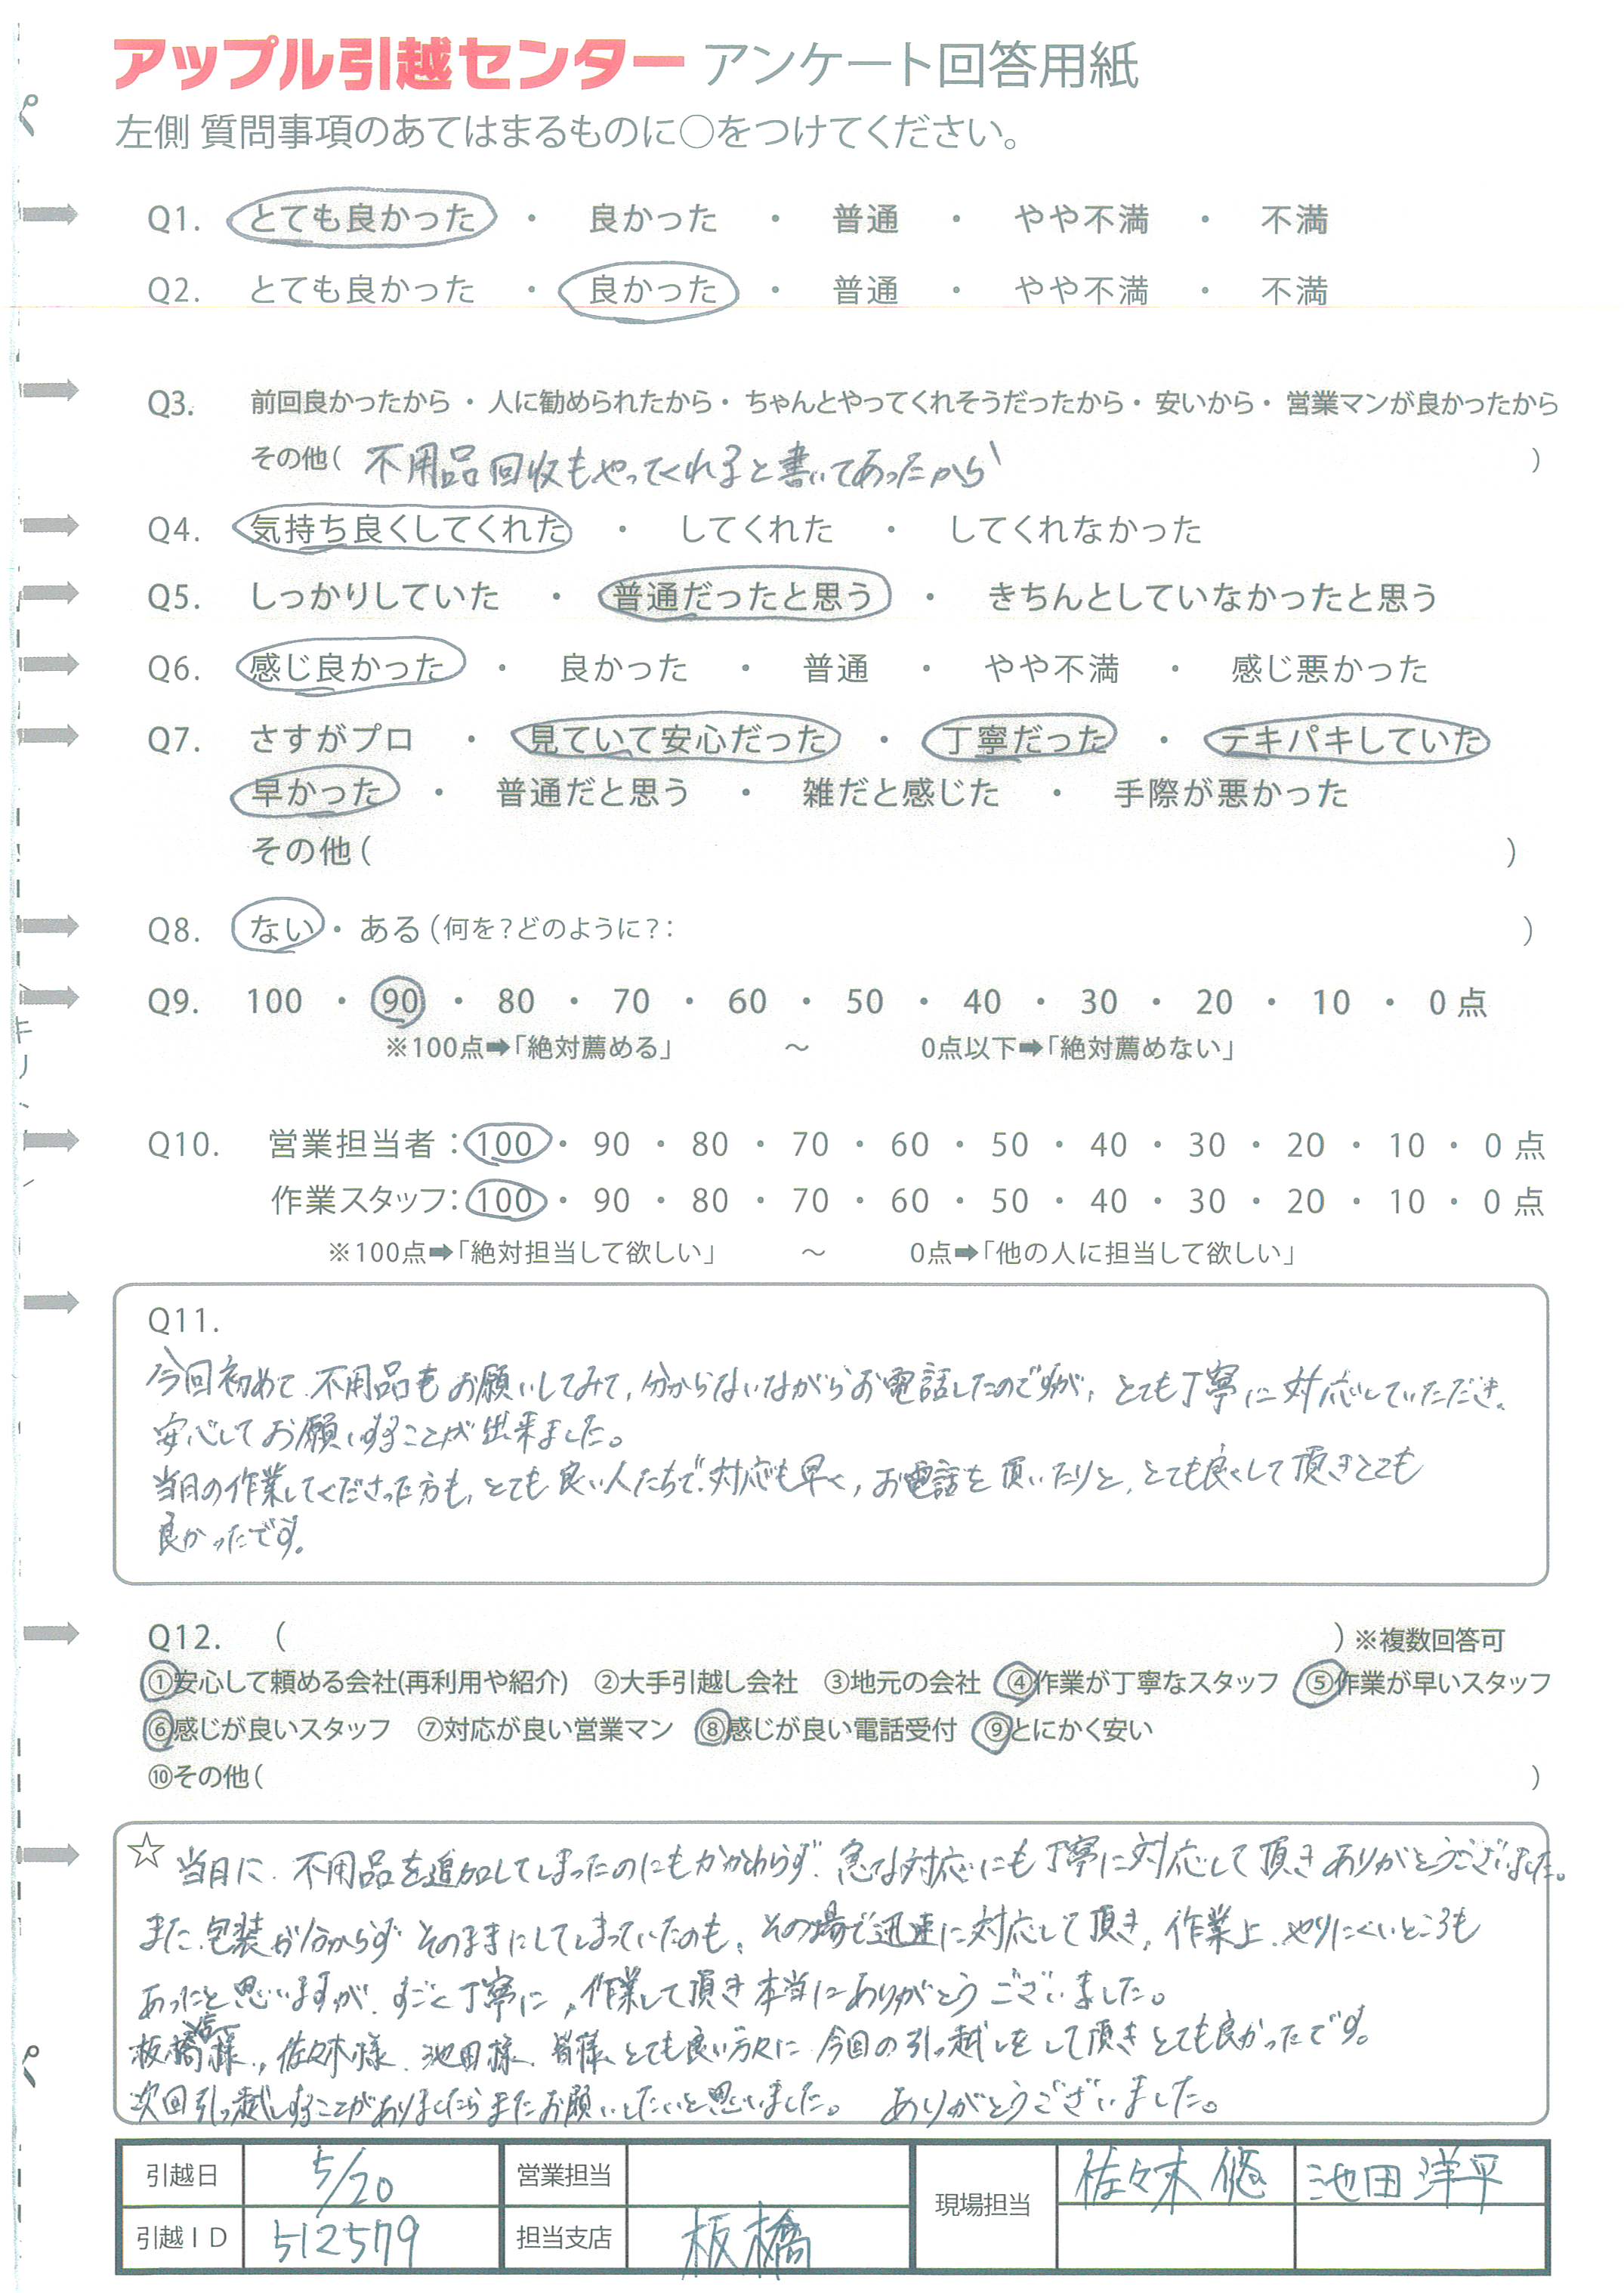 アップル引越センター アンケート回答用紙
左側 質問事項のあてはまるものに○をつけてください。
Q1. とても良かった ・ 良かった ・ 普通 ・ やや不満 ・ 不満
Q2. とても良かった ・ 良かった ・ 普通 ・ やや不満 ・ 不満
Q3. 前回良かったから・人に勧められたから・ちゃんとやってくれそうだったから・安いから・営業マンが良かったから
その他( 不用品回収もやってくれると書いてあったから )
Q4. 気持ち良くしてくれた ・ してくれた ・ してくれなかった
Q5. しっかりしていた ・ 普通だったと思う ・ きちんとしていなかったと思う
Q6. 感じ良かった ・ 良かった ・ 普通 ・ やや不満 ・ 感じ悪かった
Q7. さすがプロ ・ 見ていて安心だった ・ 丁寧だった ・ テキパキしていた
早かった ・ 普通だと思う ・ 雑だと感じた ・ 手際が悪かった
その他( )
Q8. ない・ある(何を?どのように?: )
Q9. 100 ・ 90 ・ 80 ・ 70 ・ 60 ・ 50 ・ 40 ・ 30 ・ 20 ・ 10 ・ 0点
※100点➡「絶対薦める」 ～ 0点以下➡「絶対薦めない」
Q10. 営業担当者:100・90・80・70・60・50・40・30・20・10・0点
作業スタッフ:100・90・80・70・60・50・40・30・20・10・0点
※100点➡「絶対担当して欲しい」 ～ 0点➡「他の人に担当して欲しい」
Q11.
今回初めて、不用品もお願いしてみて、分からないながらお電話したのですが、とても丁寧に対応していただき、
安心してお願いすることが出来ました。
当日の作業してくださった方も、とても良い人たちで、対応も早く、お電話を頂いたりと、とても良くして頂きとても
良かったです。
Q12. ( )※複数回答可
①安心して頼める会社(再利用や紹介) ②大手引越し会社 ③地元の会社 ④作業が丁寧なスタッフ ⑤作業が早いスタッフ
⑥感じが良いスタッフ ⑦対応が良い営業マン ⑧感じが良い電話受付 ⑨とにかく安い
⑩その他( )
☆ 当日に、不用品を追加してしまったのにもかかわらず、急な対応にも丁寧に対応して頂きありがとうございました。
また、包装が分からずそのままにしてしまっていたのも、その場で迅速に対応して頂き、作業上、やりにくいところも
あったと思いますが、すごく丁寧に、作業して頂き本当にありがとうございました。
板橋店様、佐々木様、池田様、皆様、とても良い方々に今回の引っ越しをして頂きとても良かったです。
次回引っ越しすることがありましたらまたお願いしたいと思いました。 ありがとうございました。
引越日 5/20 営業担当 現場担当 佐々木 悠 池田洋平
引越ID 512579 担当支店 板橋
キリ